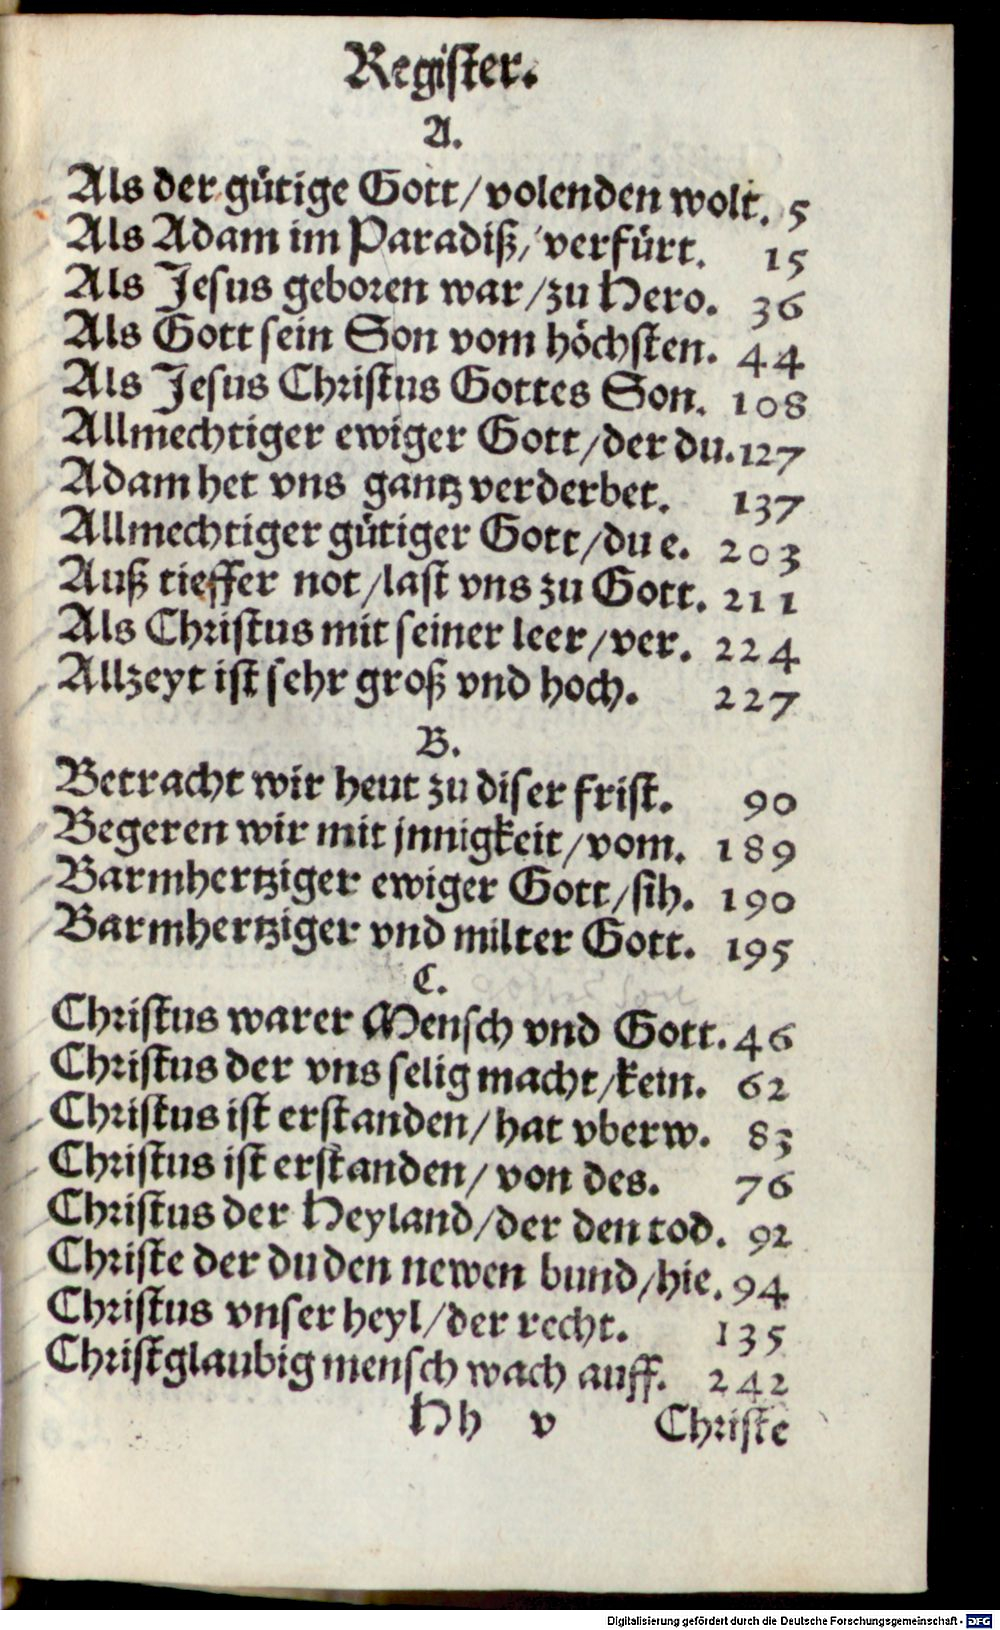 Register.
A.
Als der gütige Gott/volenden wolt. 5
Als Adam im Paradiß/verfürt. 15
Als Jesus geboren war/zu Hero. 36
Als Gott sein Son vom höchsten. 44
Als Jesus Christus Gottes Son. 108
Allmechtiger ewiger Gott/der du. 127
Adam het vns gantz verderbet. 137
Allmechtiger gütiger Gott/du e. 203
Auß tieffer not/last vns zu Gott. 211
Als Christus mit seiner leer/ver. 224
Allzeyt ist sehr groß vnd hoch. 227
B.
Betracht wir heut zu diser frist. 90
Begeren wir mit jnnigkeit/vom. 189
Barmhertziger ewiger Gott/sih. 190
Barmhertziger vnd milter Gott. 195
C.
Christus warer Mensch vnd Gott. 46
Christus der vns selig macht/kein. 62
Christus ist erstanden/hat vberw. 83
Christus ist erstanden/von des. 76
Christus der Heyland/der den tod. 92
Christe der du den newen bund/hie. 94
Christus vnser heyl/der recht. 135
Christglaubig mensch wach auff. 242
Hh v Christe
Digitalisierung gefördert durch die Deutsche Forschungsgemeinschaft - DFG